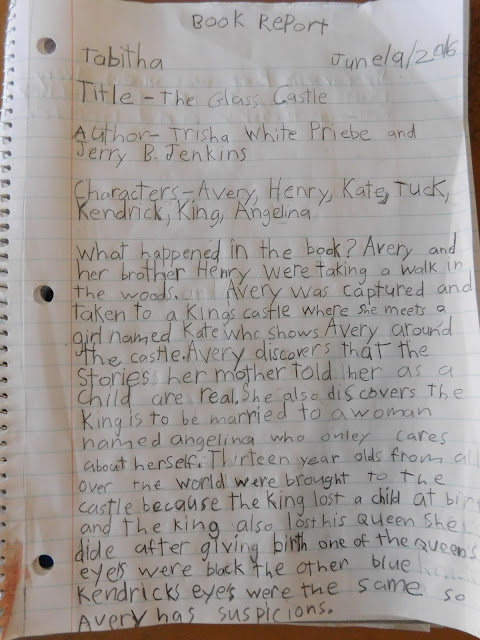 Book Report
Tabitha June/9/2016
Title - The Glass Castle
Author- Trisha White Priebe and
Jerry B. Jenkins
Characters - Avery, Henry, Kate, Tuck,
Kendrick, King, Angelina
What happened in the book? Avery and
her brother Henry were taking a walk in
the woods. Avery was captured and
taken to a Kings castle where she meets a
girl named Kate who shows Avery around
the castle. Avery discovers that the
Stories her mother told her as a
child are real. She also discovers the
King is to be married to a woman
named angelina who onley cares
about herself. Thirteen year olds from all
over the world were brought to the
castle because the King lost a child at birt
and the King also lost his Queen she
dide after giving birth one of the Queens
eyes were black the other blue
Kendricks eyes were the same so
Avery has suspicions.